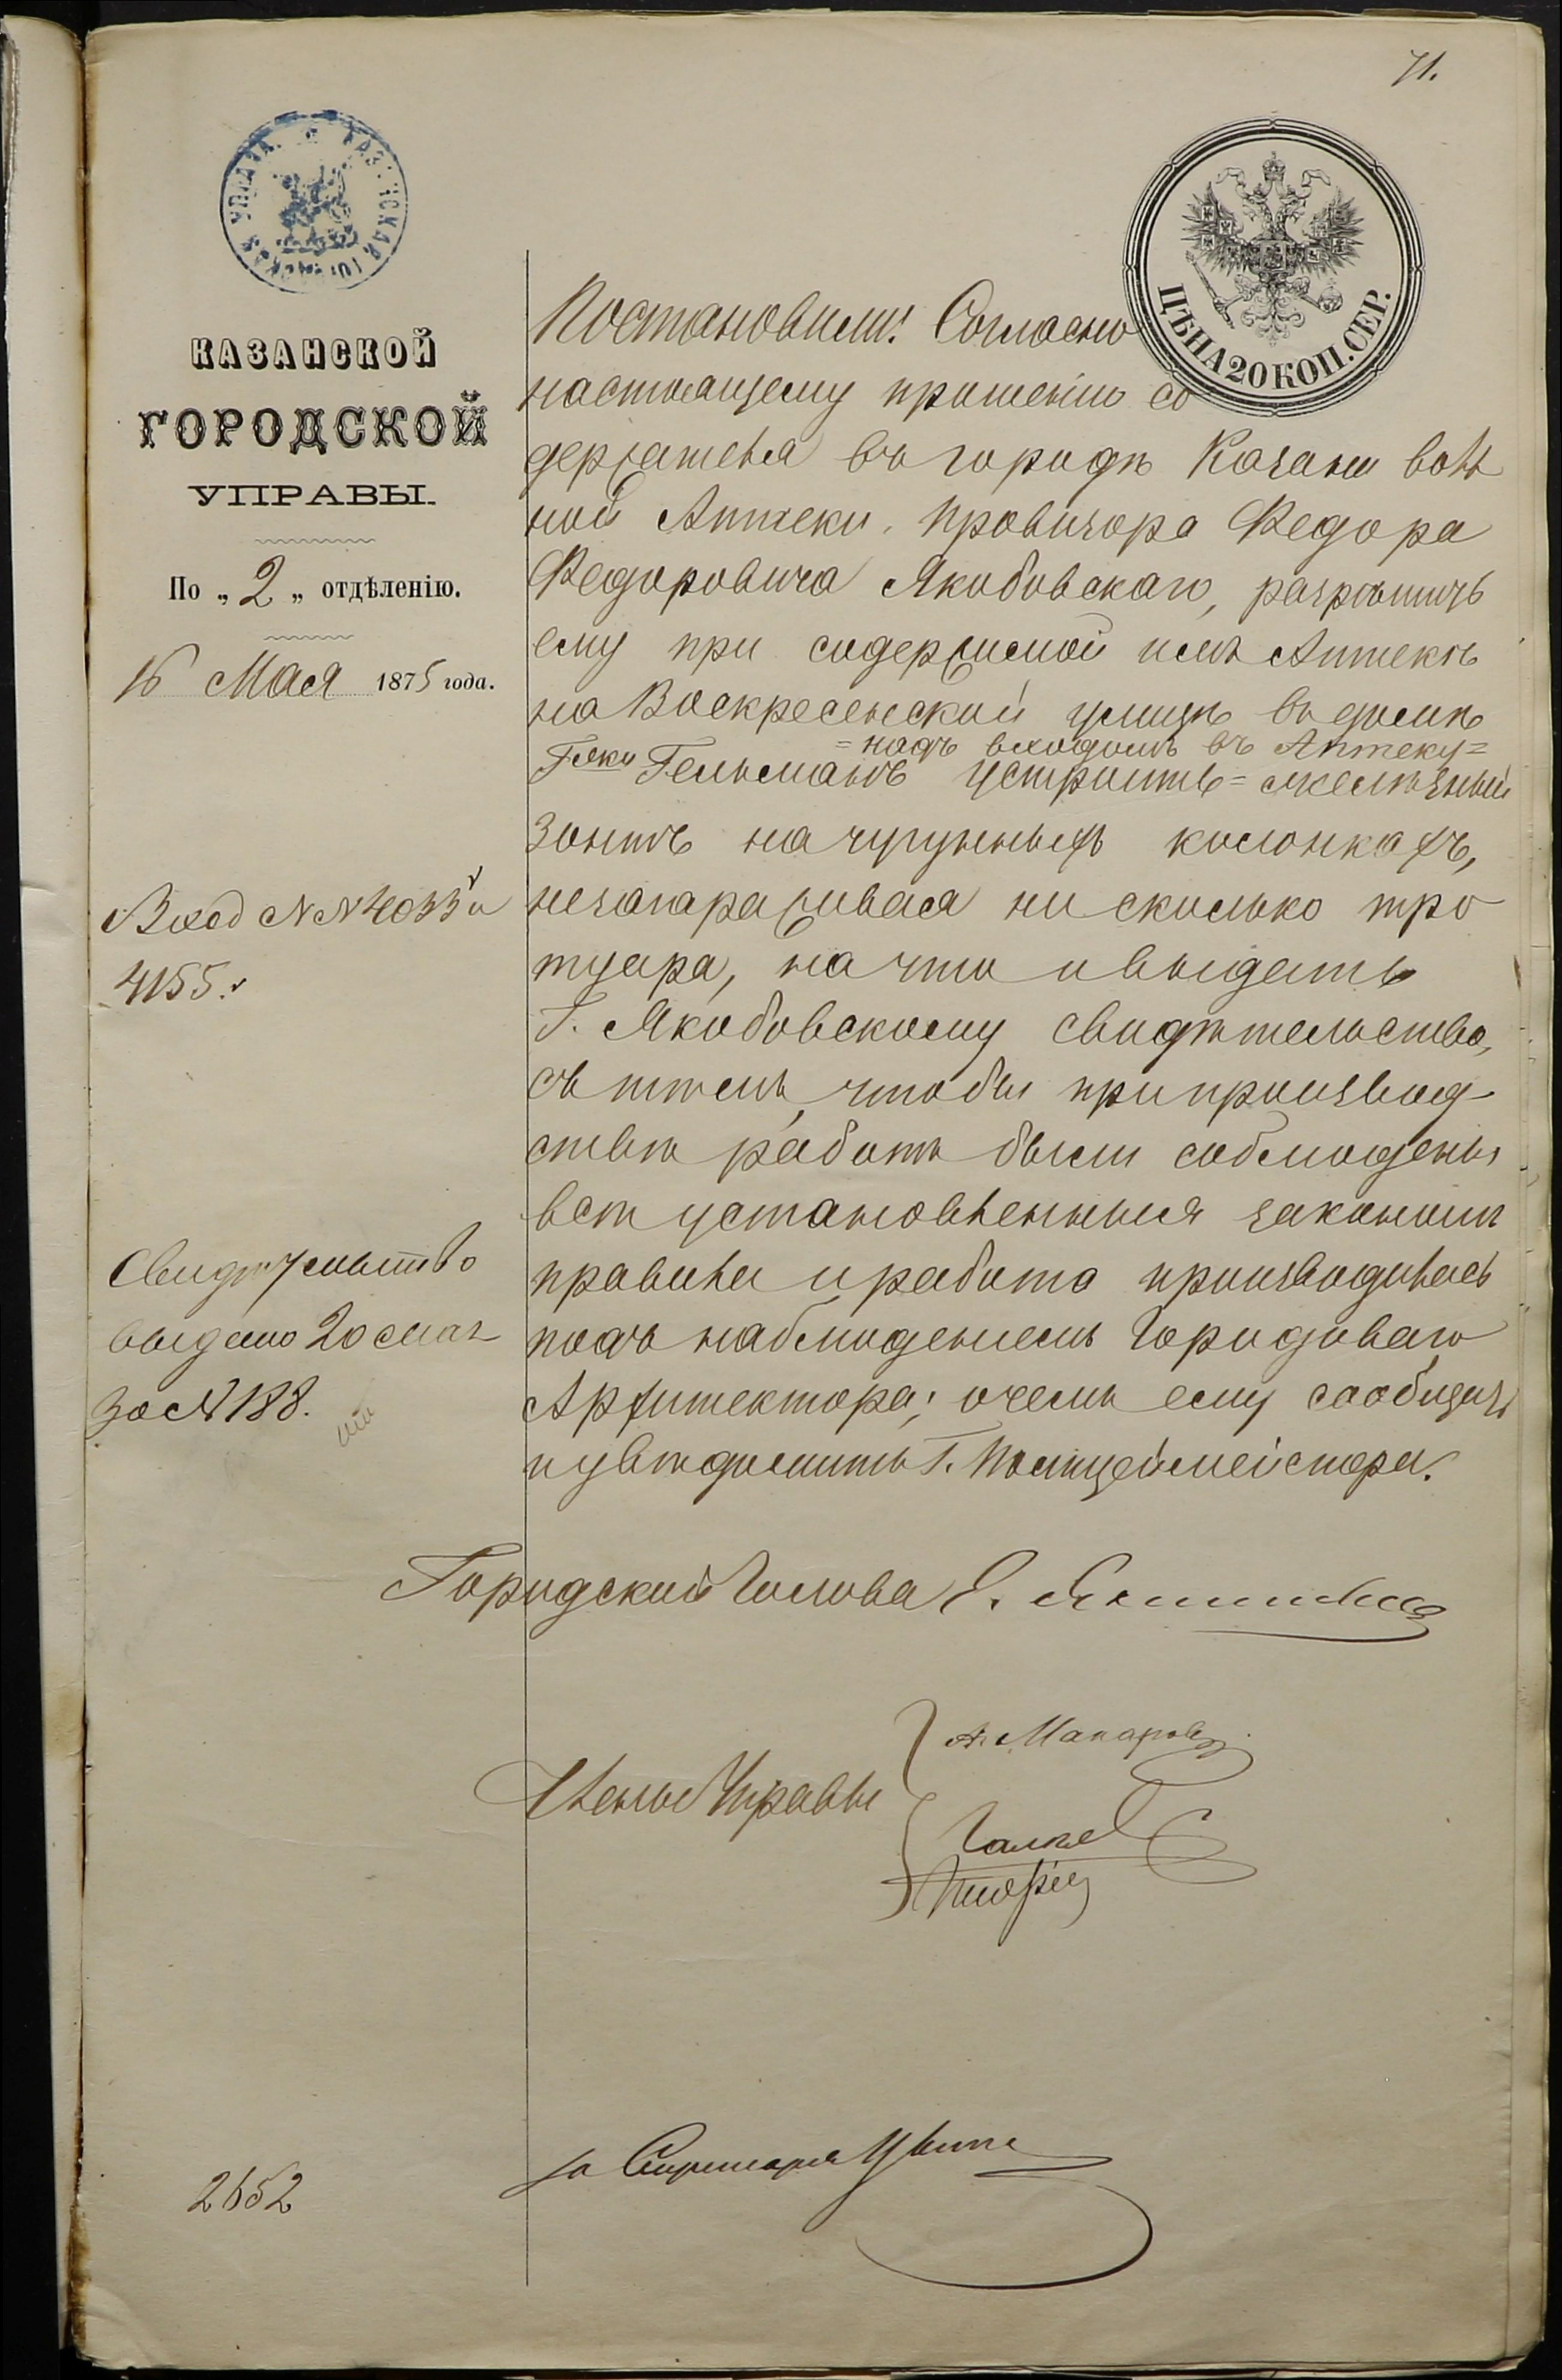 71.
КАЗАНСКАЯ ГОРОДСКАЯ УПРАВА
ЦѢНА 20 КОП. СЕР.
КАЗАНСКОЙ
ГОРОДСКОЙ
УПРАВЫ.
По „2„ отдѣленію.
16 Мая 1875 года.
Вход NN 4033 и
4155.
Свидѣтельство
выдано 20 мая
за N 188.
Постановили: Согласно
настоящему прошенію со
держателя въ городѣ Казани воль
ной Аптеки, провизора Федора
Федоровича Якобовскаго, разрѣшить
ему при содержимой имъ Аптекѣ
на Воскресенской улицѣ въ домѣ
= надъ входомъ въ Аптеку =
Г-жи Гельманъ устроить = желѣзный
зонтъ на чугунныхъ колонкахъ,
незагораживая ни сколько тро
туара, на что и выдать
Г. Якобовскому свидѣтельство,
съ тѣмъ, чтобы при производ-
ствѣ работъ были соблюдены
всѣ установленныя закономъ
правила и работа производилась
подъ наблюденіемъ Городоваго
Архитектора; о чемъ ему сообщить
и увѣдомить Г. Полицеймейстера.
Городской Голова Э. Янишевскій
Члены Управы
А. Макаровъ
Секретаря
2652